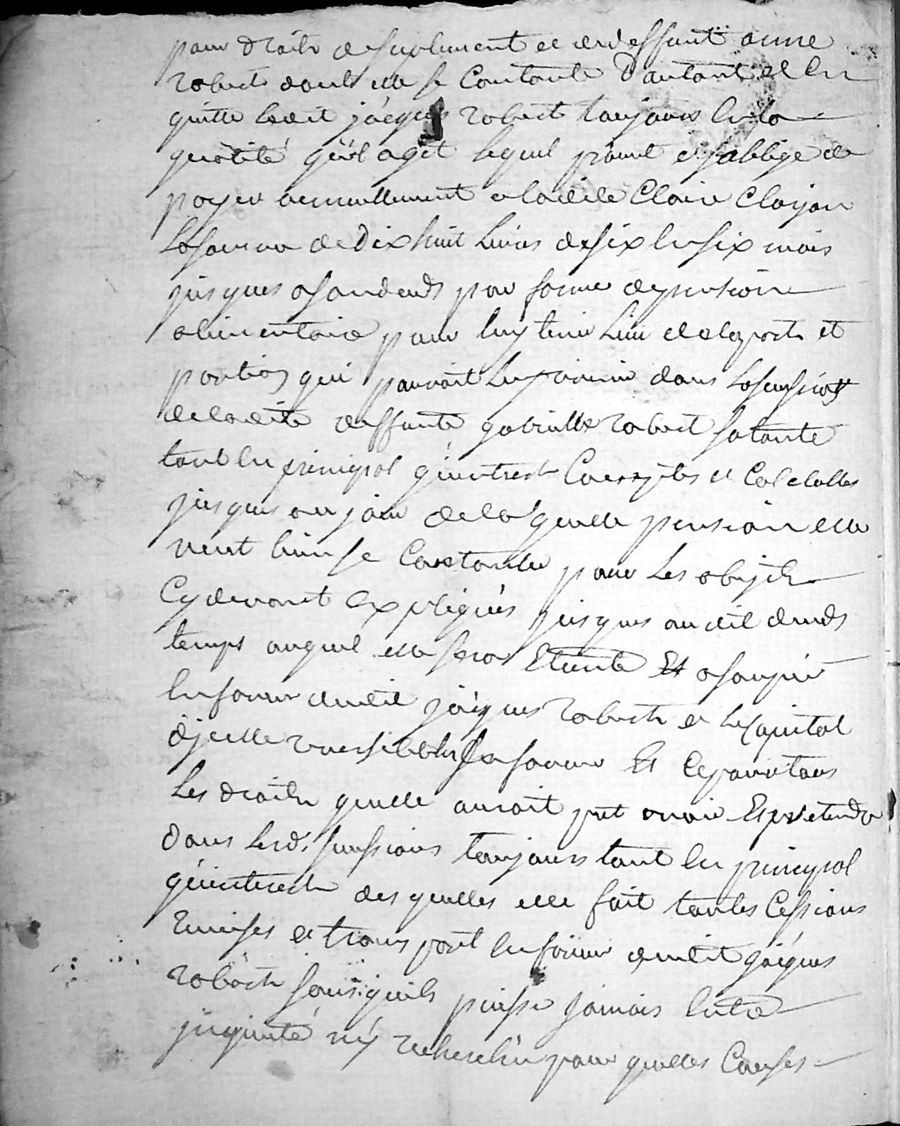 pour droits de suplement et dud deffunt anne
robert dont elle se Contante d'autant et en
quitte ledit jacques robert toujours en la
qualité qu'il agit lequel promet et s'obblige de
payer annuellement a ladite Claire Clayon
la somme de Dix huit Livres de six en six mois
jusques a son deceds pour forme de pension
alimentaire pour luy tenir Lieu de la part et
portion qui pouvoit luy revenir dans la sucession
de ladite deffunte gabrielle robert sa tante
tant en principal qu'interest et
jusques au jour de la quelle pension elle
veut bien se Contanter pour Les objets
Cy devant Expliqués jusques audit deceds
temps auquel elle sera Eteinte Et assoupie
en faveur dudit jacques robert et le Capital
d'jcelle reversible En sa faveur Et Ce pour tous
Les droits quelle auroit put avoir Et pretendre
dans lesd. sucessions toujours tant en principal
qu'interest des quelles elle fait toutes Cessions
remises et transport en faveur dudit jacques
robert sans quils puisse jamais Entre
jnquieté ny recherché pour quelles Causes